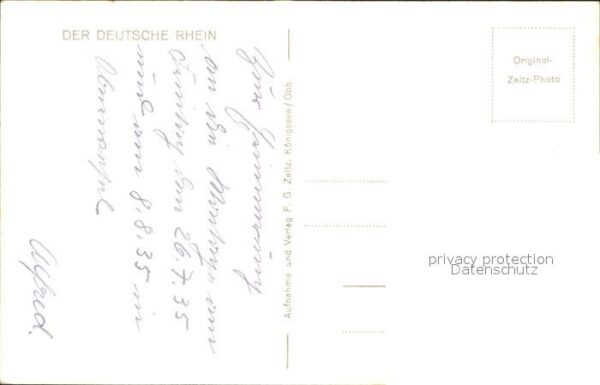 DER DEUTSCHE RHEIN
Zur Erinnerung
an die
Freitag den 26.7.35
und am 8.8.35 in
Alfred.
Aufnahme und Verlag F. G. Zeitz, Königssee/Obb.
Original-
Zeitz-Photo
privacy protection
Datenschutz